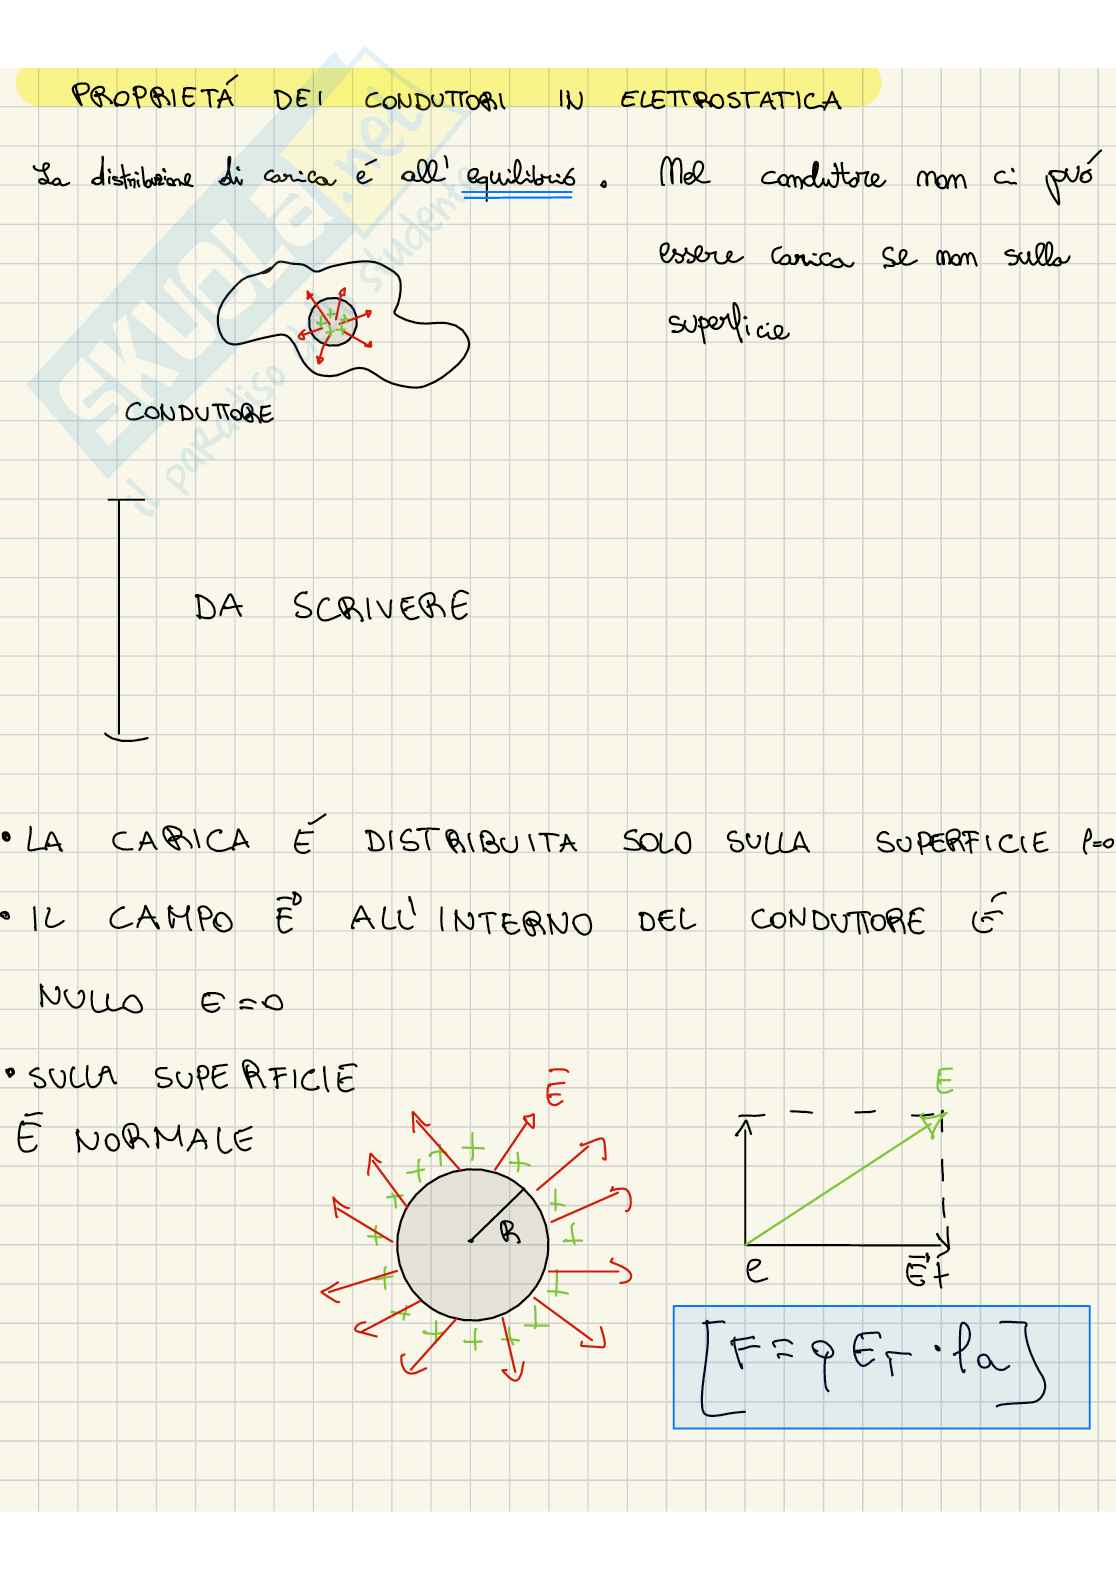 PROPRIETÁ DEI CONDUTTORI IN ELETTROSTATICA
La distribuzione di carica é all' equilibrio. Nel conduttore non ci puó
essere carica se non sulla
superficie
CONDUTTORE
DA SCRIVERE
• LA CARICA É DISTRIBUITA SOLO SULLA SUPERFICIE ρ=0
• IL CAMPO E ALL'INTERNO DEL CONDUTTORE É
NULLO E=0
• SULLA SUPERFICIE
E NORMALE
E
R
E
e
E t
[F = q E_T
SKUOLA.net
il paradiso dello studente